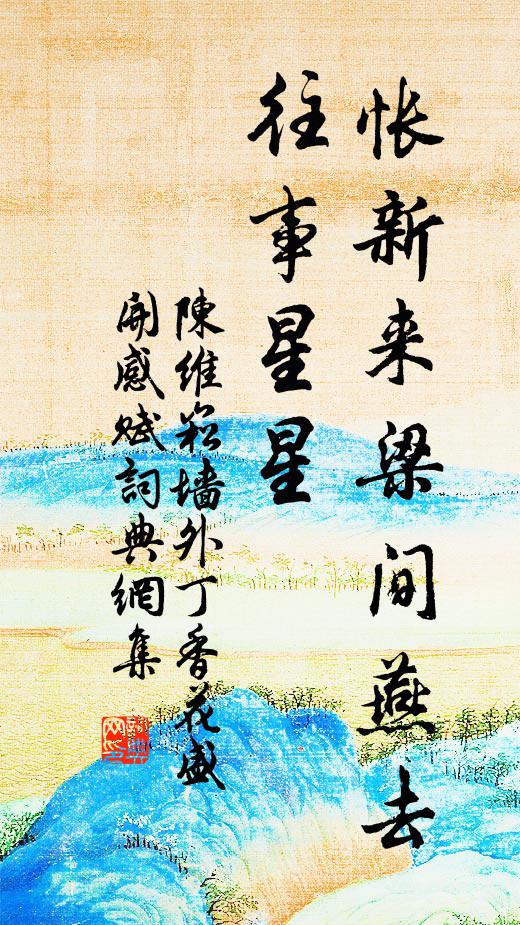 怅新来梁间燕去
往事星星
陳維崧墙外丁香花盛
開感赋詞典網集